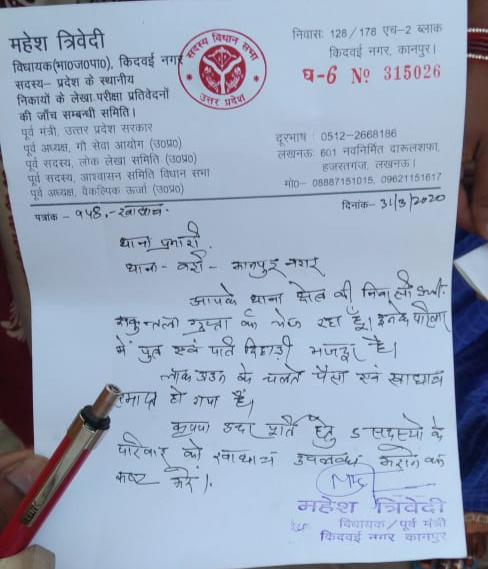 महेश त्रिवेदी
विधायक(भा०ज०पा०), किदवई नगर
सदस्य– प्रदेश के स्थानीय
निकायों के लेखा परीक्षा प्रतिवेदनों
की जाँच सम्बन्धी समिति।
पूर्व मंत्री, उत्तर प्रदेश सरकार
पूर्व अध्यक्ष, गौ सेवा आयोग (उ०प्र०)
पूर्व सदस्य, लोक लेखा समिति (उ०प्र०)
पूर्व सदस्य, आश्वासन समिति विधान सभा
पूर्व अध्यक्ष, वैकल्पिक ऊर्जा (उ०प्र०)
सदस्य विधान सभा
उत्तर प्रदेश
निवास: 128 / 178 एच–2 ब्लाक
किदवई नगर, कानपुर।
घ-6 Nº 315026
दूरभाष : 0512–2668186
लखनऊ: 601 नवनिर्मित दारूलशफा,
हजरतगज, लखनऊ।
मो०– 08887151015, 09621151617
पत्रांक – ९५४.-खाद्यान्न.
दिनांक– 31/3/2020
थाना प्रभारी.
थाना - बर्रा - कानपुर नगर
आपके थाना क्षेत्र की निवासी श्रीमती
शकुन्तला गुप्ता को भेज रहा हूँ। इनके परिवार
में पुत्र एवं पति दिहाड़ी मजदूर है।
लाक डाउन के चलते पैसा एवं खाद्यान्न
समाप्त हो गया है।
कृपया हेतु 5 सदस्यो के
परिवार को खाद्यान्न उपलब्ध कराने का
कष्ट करें।
महेश त्रिवेदी
विधायक / पूर्व मंत्री
किदवई नगर कानपुर